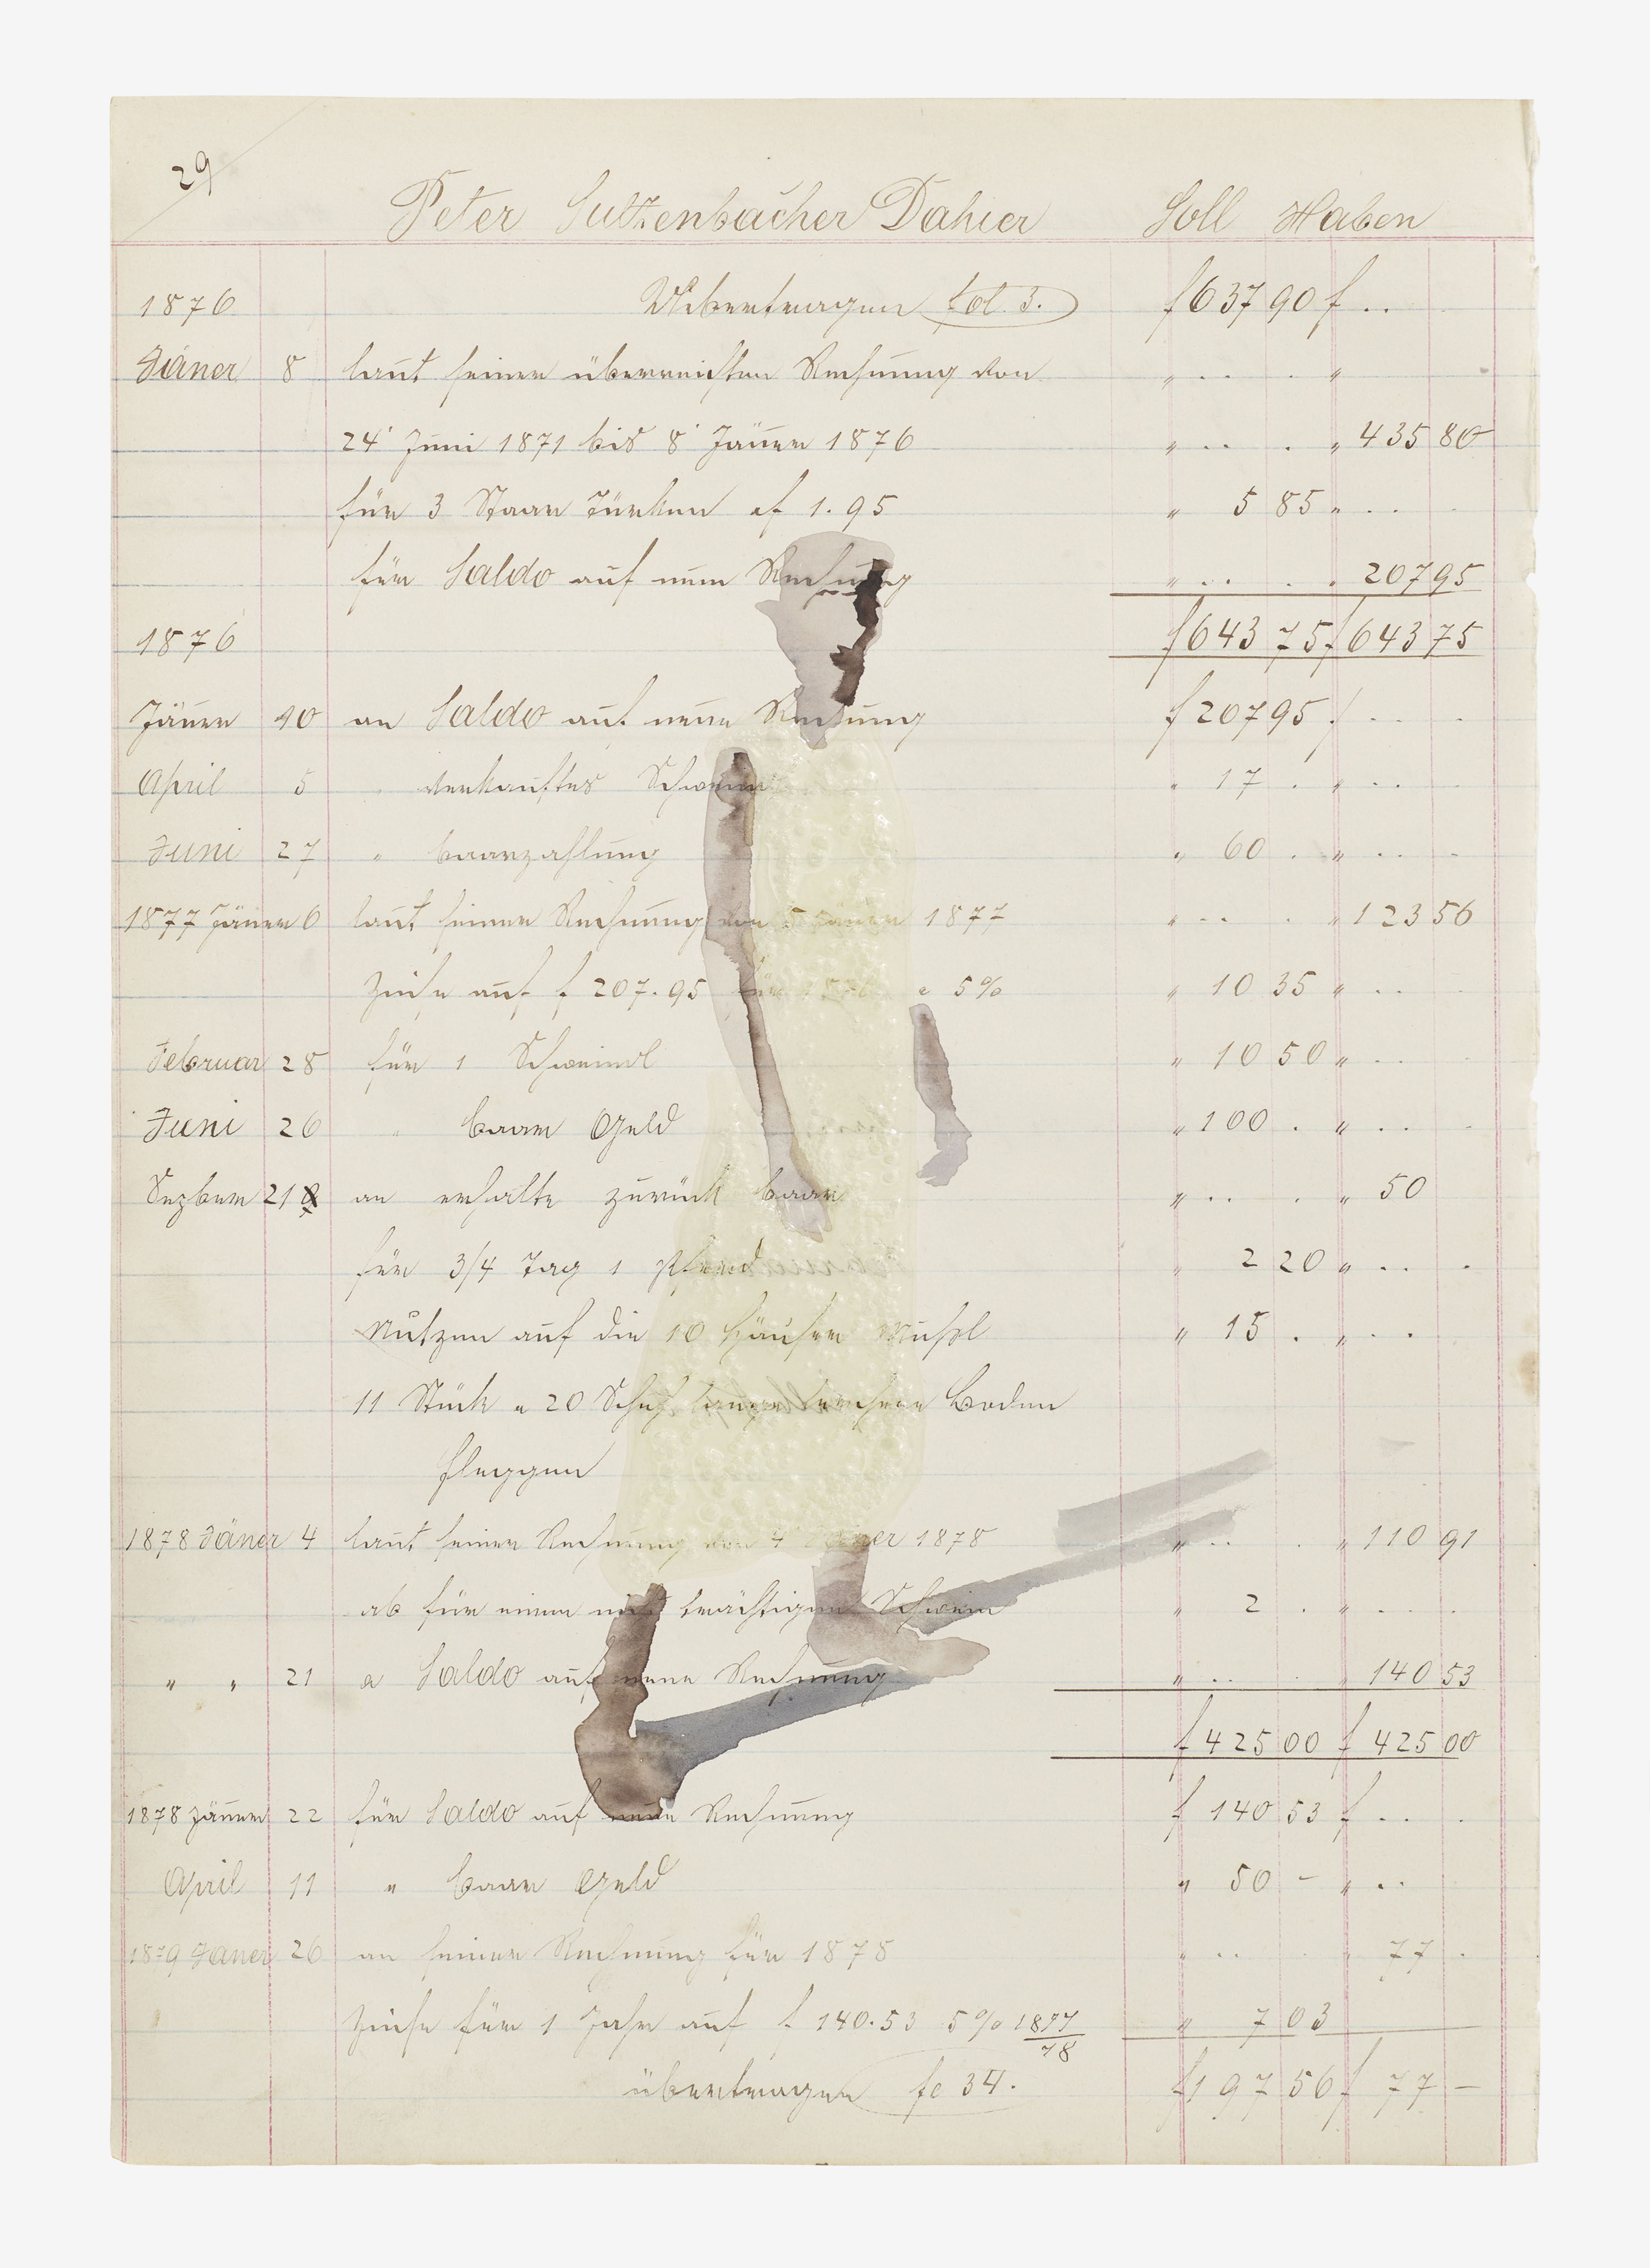 29
Peter Sulzenbacher Dahier Soll Haben
1876 Uebertragen fol. 3. f 637 90 f ..
Jäner 8 laut seiner überreichten Rechnung von " .. . "
24' Juni 1871 bis 8' Jänner 1876 " .. . " 435 80
für 3 Staar Türken a f 1.95 " 5 85 " ..
für Saldo auf neue Rechnung " .. . . 207 95
1876 f 643 75 f 643 75
Jänner 10 an Saldo auf neue Rechnung f 207 95 f .. .
April 5 " verkauftes Schwein " 17 . " ..
Juni 27 " baarzahlung " 60 . " .. -
1877 Jänner 6 laut seiner Rechnung von 5 Jäner 1877 " .. . " 123 56
Zinse auf f 207.95 für 1876 a 5% " 10 35 " ..
Februar 28 für 1 Schweindl " 10 50 " ..
Juni 26 " baar Geld " 100 . " ..
Sezber 21 an erhalte zurück baar " .. . " 50
für 3/4 Tag 1 Pferd " 2 20 " .. .
Nutzen auf die 10 Häuser " 15 . " ..
11 Stück a 20 Schuh lange lerchene Boden
fleggen
1878 Jäner 4 laut seiner Rechnung von 4' Jäner 1878 " .. . " 110 91
ab für einen trächtigen Schwein " 2 . " .. .
" " 21 a Saldo auf neue Rechnung " .. . " 140 53
f 425 00 f 425 00
1878 Jänner 22 für Saldo auf neue Rechnung f 140 53 f .. .
April 11 " baar Geld " 50 - " ..
1879 Jäner 26 an seiner Rechnung für 1878 " .. . " 77 .
Zinse für 1 Jahr auf f 140.53 5% 1877/78 " 7 03
übertragen fo 34. f 197 56 f 77 -